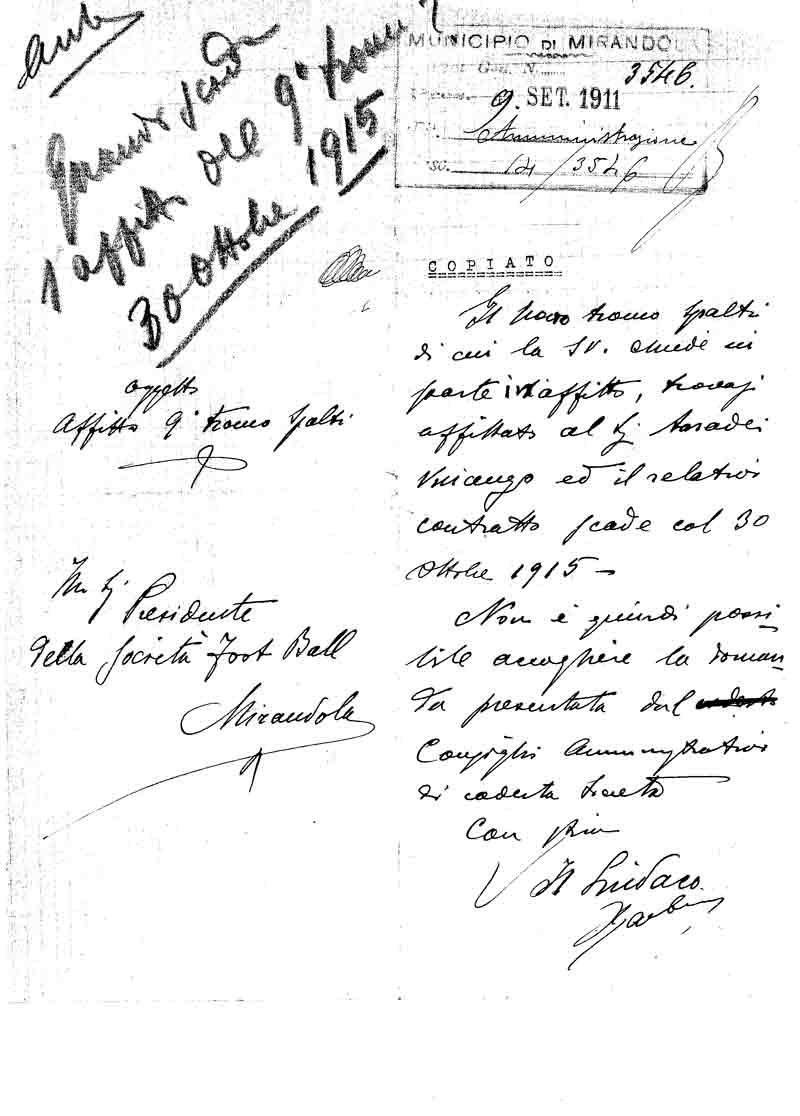 Quando scade
l'affitto del 9° tronco?
30 Ottobre 1915
MUNICIPIO DI MIRANDOLA
Gen. N. 3546.
9. SET. 1911
Amministrazione
14/3546
COPIATO
Il nono tronco spalti
di cui la SV. chiede in
parte in affitto, trovasi
affittato al Sg
ed il relativo
contratto scade col 30
Ottobre 1915 –
Non è quindi possi
bile accogliere la doman
da presentata dal
Consiglio Amministrativo
di codesta Società
Con stima
Il Sindaco
oggetto
Affitto 9° tronco spalti
Presidente
della Società Foot Ball
Mirandola